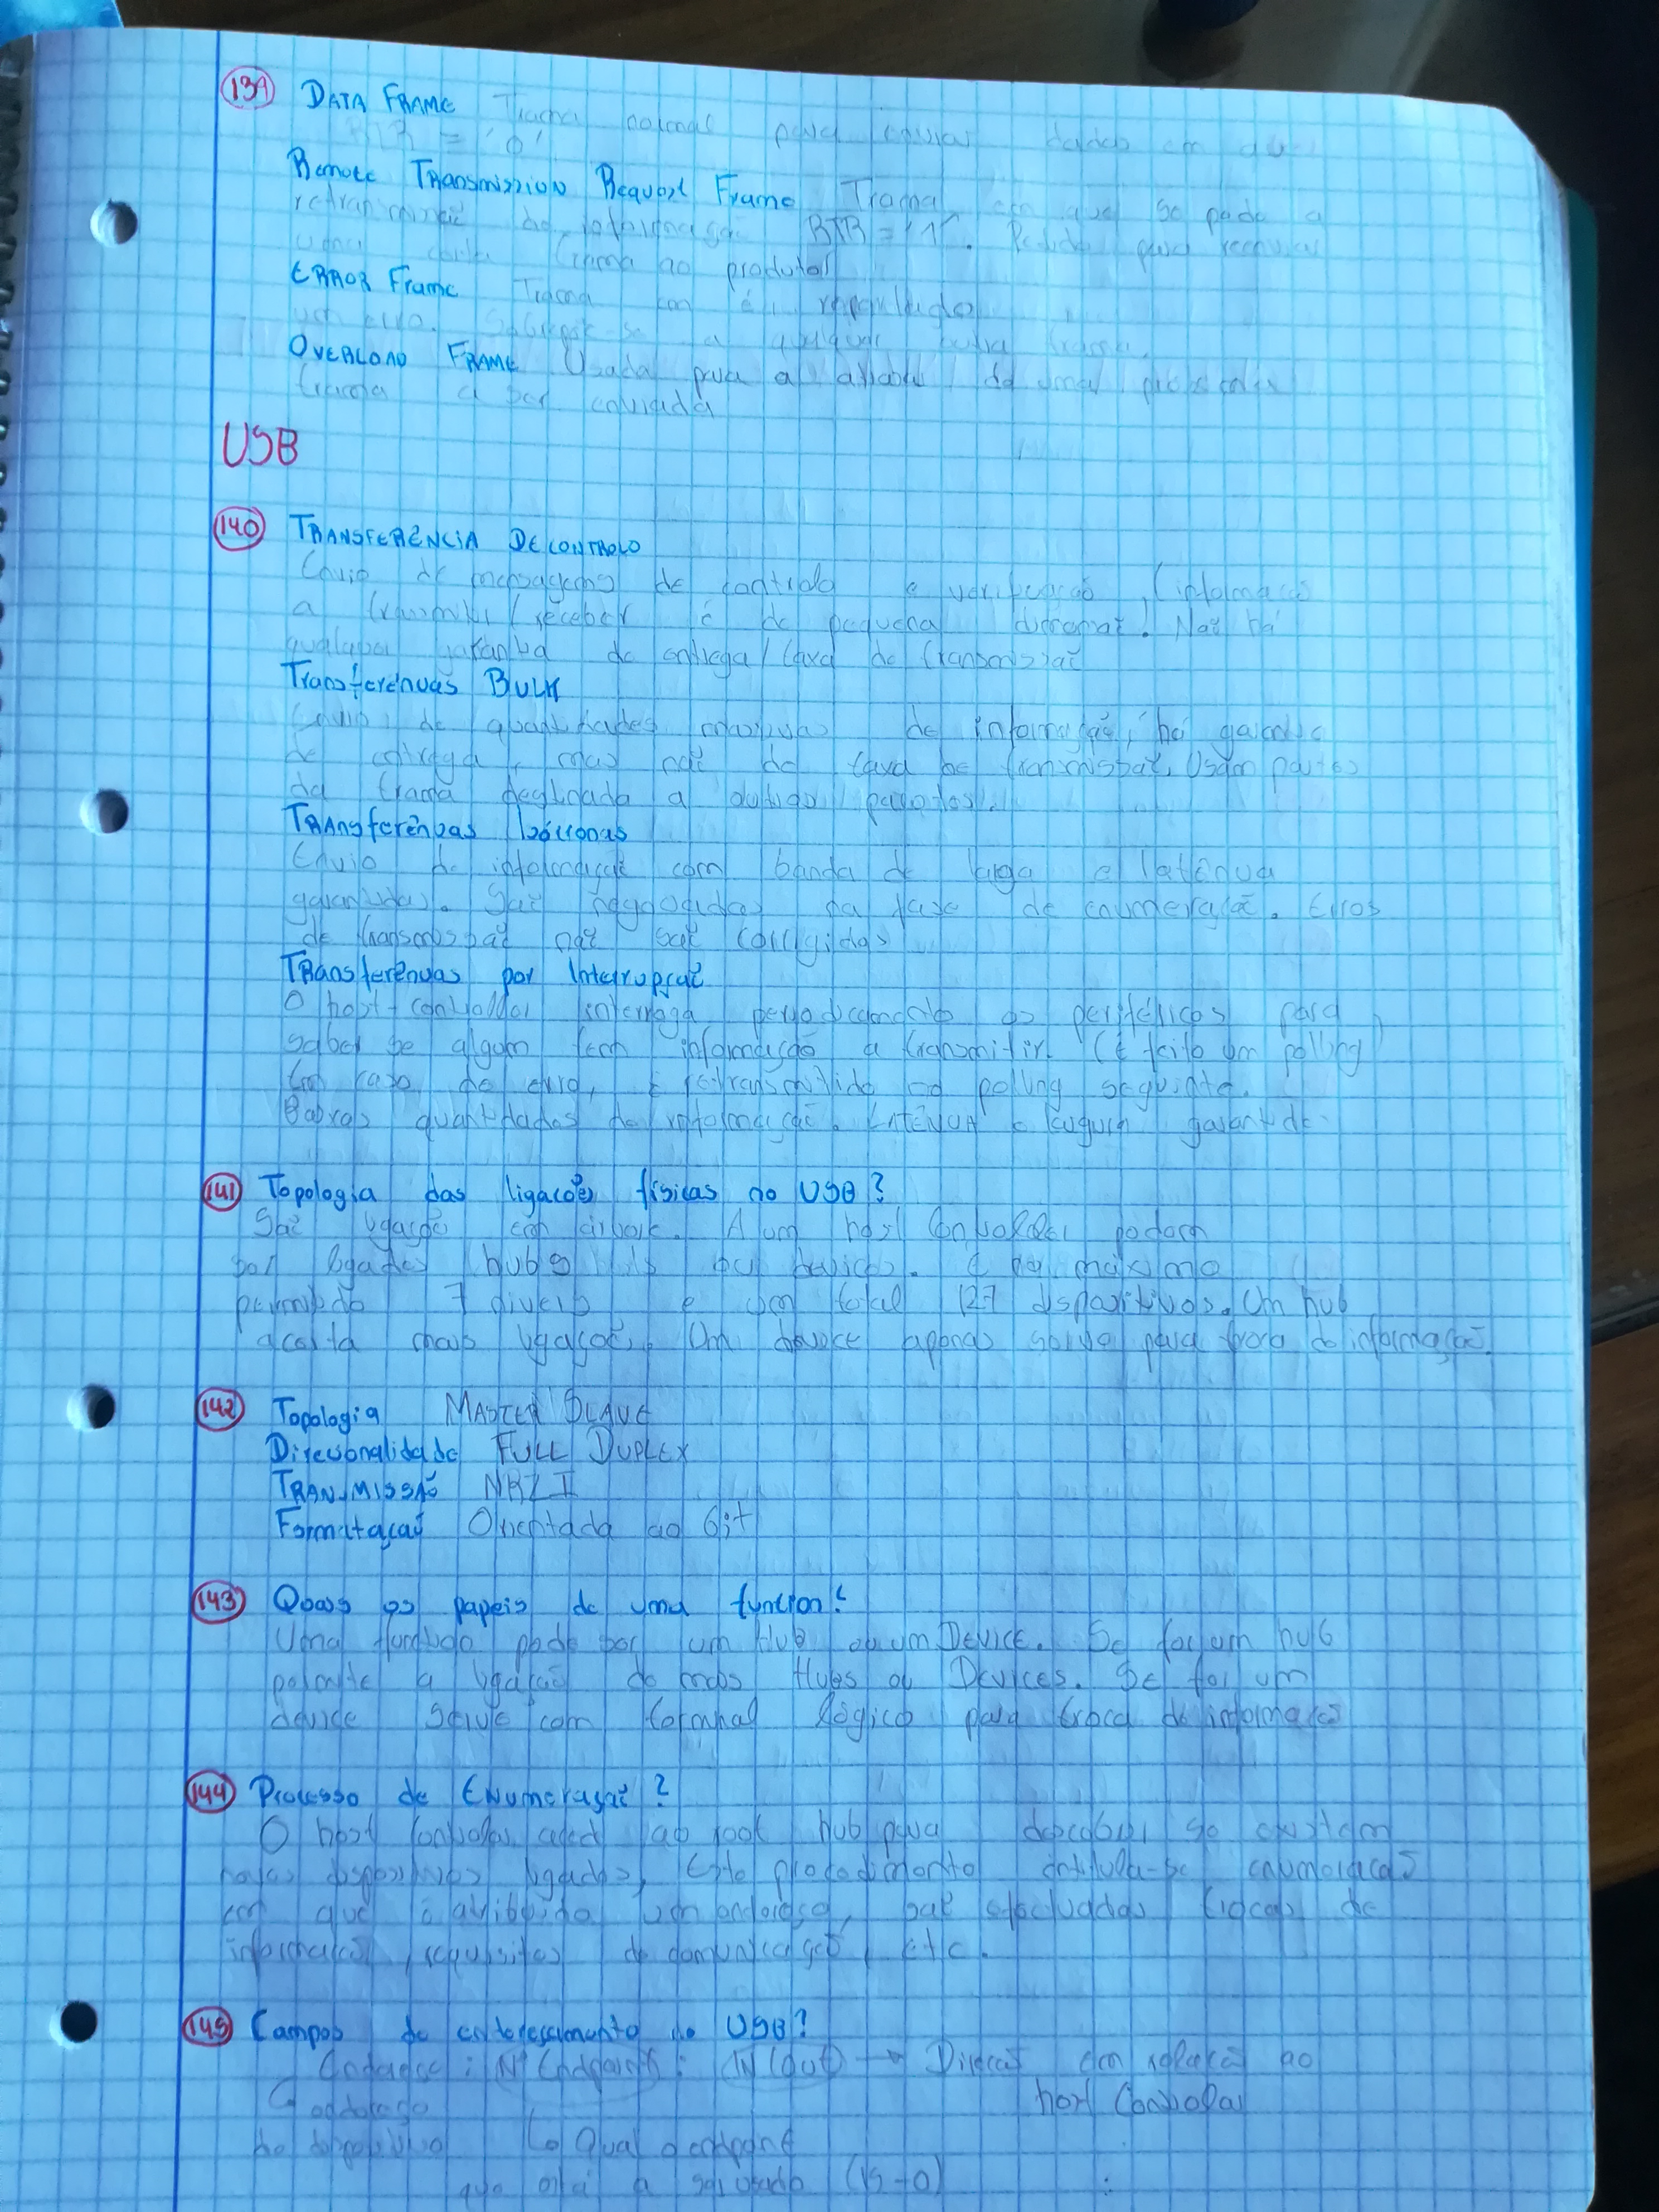 139 DATA FRAME Trama normal para enviar dados em que
RTR = '0'
Remote Transmission Request Frame Trama em que se pede a
retransmissão da informação RTR = '1'. Pedido para reenviar
uma certa trama ao produtor
ERROR Frame Trama em é reportado
um erro. Sobrepõe-se a qualquer outra trama.
OVERLOAD FRAME Usada para a de uma
trama a ser enviada
USB
140 TRANSFERÊNCIA DE CONTROLO
Envio de mensagens de controlo e verificação, (informação
a transmitir/receber é de pequena dimensão). Não há
qualquer garantia de entrega/taxa de transmissão
Transferências BULK
Envio de quantidades massivas de informação, há garantia
de entrega, mas não de taxa de transmissão. Usam partes
da trama destinada a outros pacotes.
TRANsferências Isócronas
Envio de informação com banda de larga e latência
garantidas. São negociadas na fase de enumeração. Erros
de transmissão não são corrigidos
TRansferências por Interrupção
O host-controller interroga periodicamente os periféricos para
saber se algum tem informação a transmitir. (É feito um polling)
Em caso de erro, é retransmitido no polling seguinte.
Baixas quantidades de informação. LATÊNCIA garantida
141 Topologia das ligações físicas no USB?
São ligação em árvore. A um host Controller podem
ser ligados hubs ou devices. É no máximo
permitido 7 níveis e um total 127 dispositivos. Um hub
aceita mais ligações. Um device apenas serve para troca de informação.
142 Topologia MASTER SLAVE
Direcionalidade FULL DUPLEX
TRANSMISSÃO NRZ I
Formatação Orientada ao bit
143 Quais os papeis de uma function?
Uma function pode ser um Hub ou um DEVICE. Se for um hub
permite a ligação de mais Hubs ou DEVICES. Se for um
device serve com terminal lógico para troca de informação
144 Processo de ENumeração?
O host controller acede ao root hub para descobrir se existem
novos dispositivos ligados, Este procedimento intitula-se enumeração
em que é atribuído um endereço, são efectuadas trocas de
informação, requisitos de comunicação, etc.
145 Campos de endereçamento no USB?
Endereço : Nº Endpoint : IN/Out → Direcção em relação ao
host Controller
↳ endereço
do dispositivo ↳ Qual o endpoint
que está a ser usado (15-0)